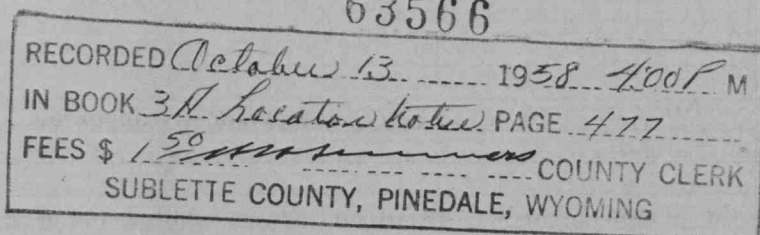 63566
RECORDED October 13 1958 4:00 P M
IN BOOK 3 A Location Notice PAGE 477
FEES $ 1.50 COUNTY CLERK
SUBLETTE COUNTY, PINEDALE, WYOMING